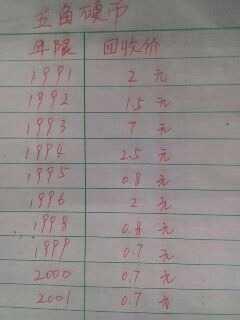 五角硬币
年限 回收价
1991 2元
1992 1.5元
1993 7元
1994 2.5元
1995 0.8元
1996 2元
1998 0.8元
1999 0.7元
2000 0.7元
2001 0.7元